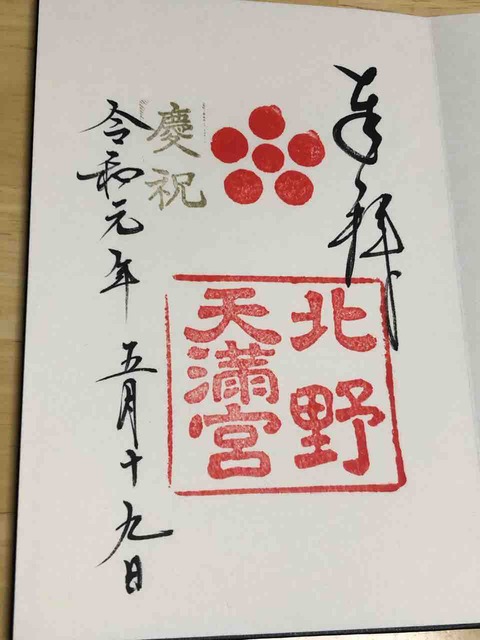 奉拝
北野
天満宮
慶祝
令和元年 五月十九日